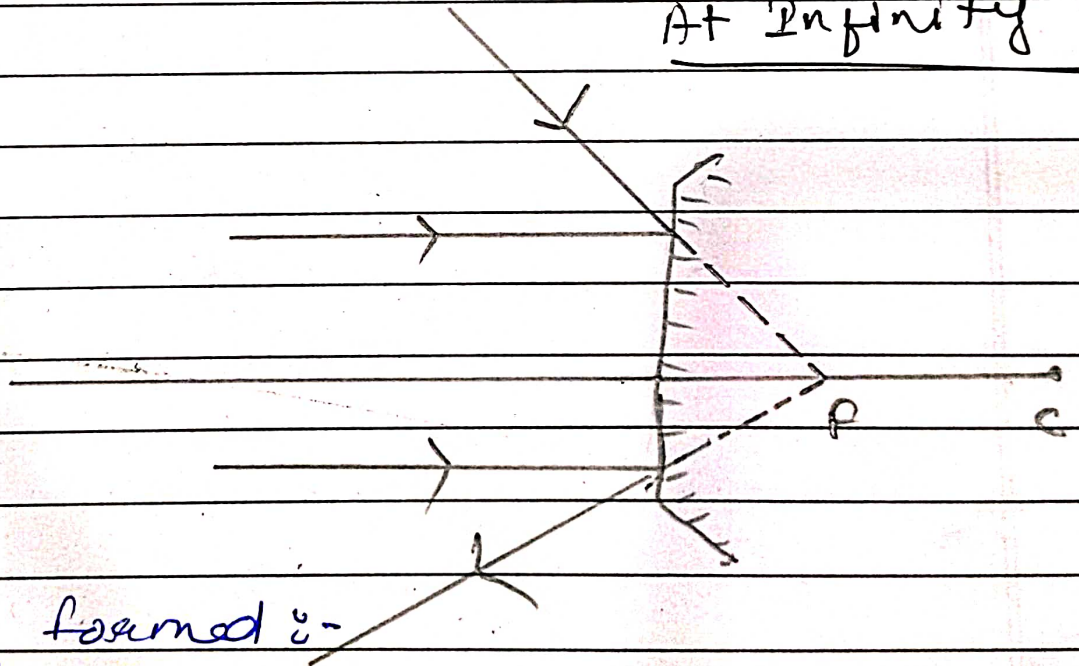 At Infinity
F C
formed :-